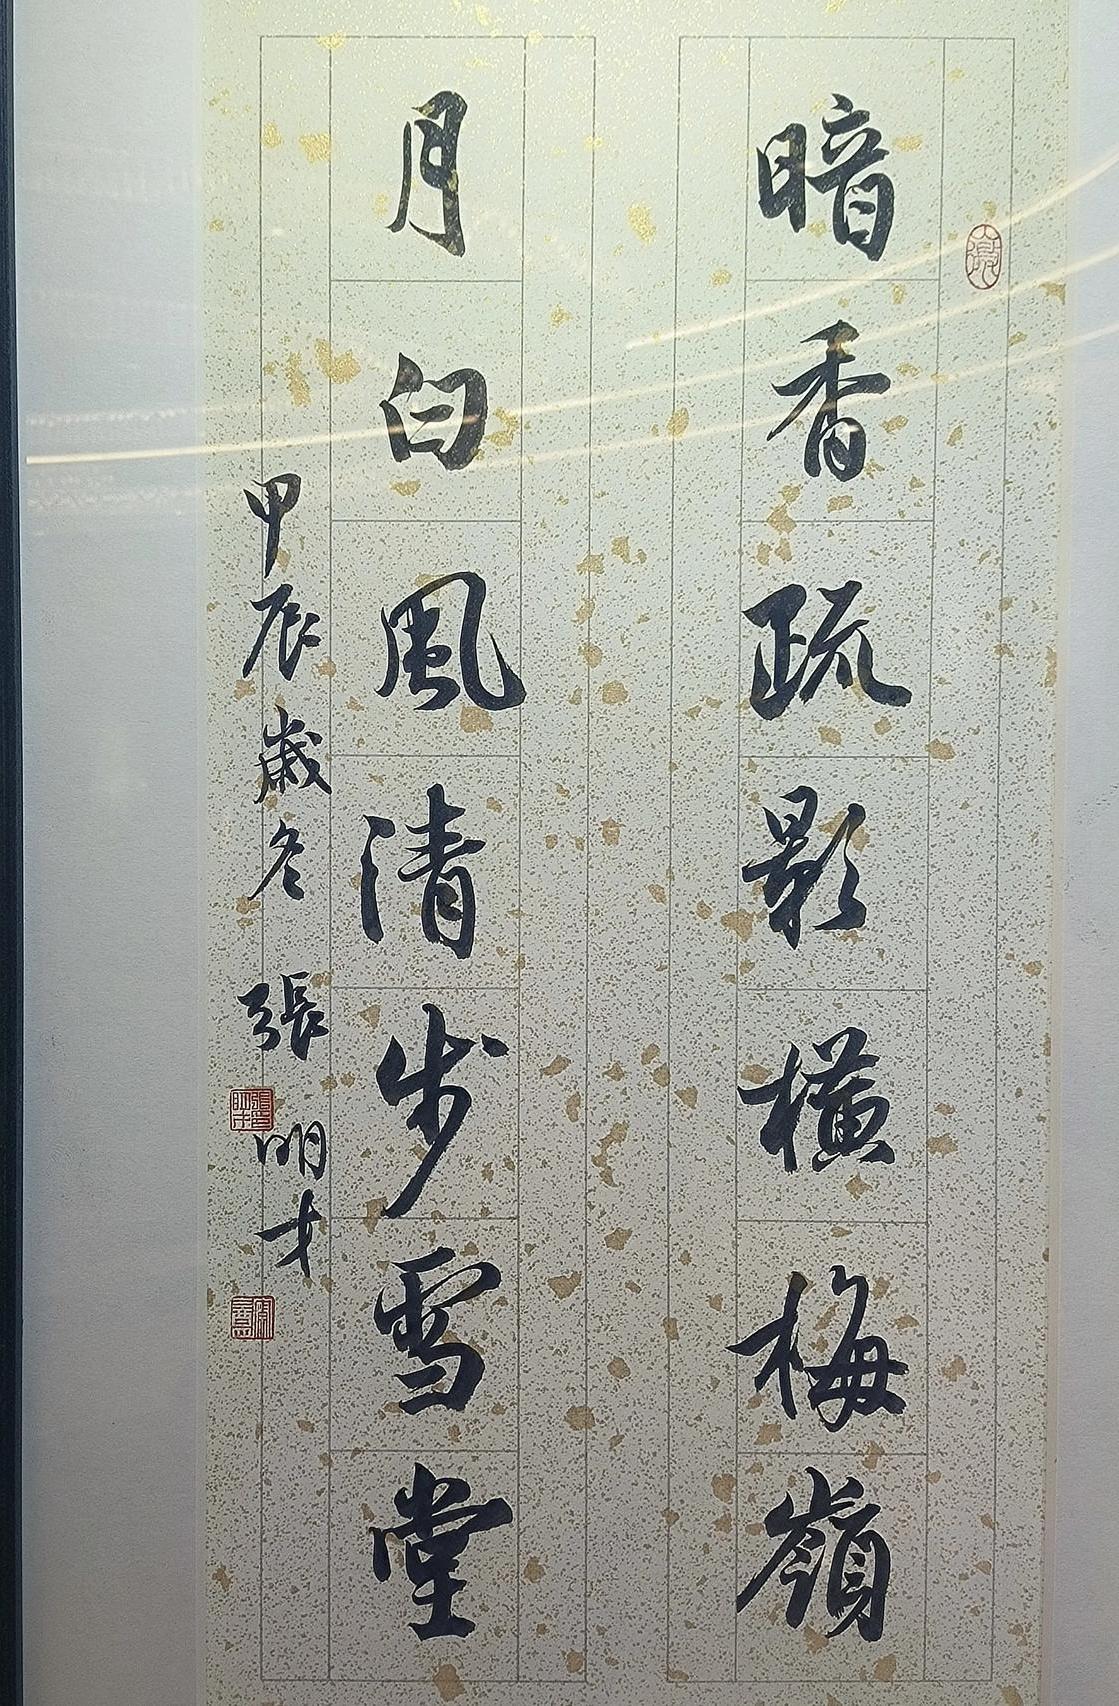 暗香疏影橫梅嶺
月白風清步雪堂
甲辰歲冬 張明才